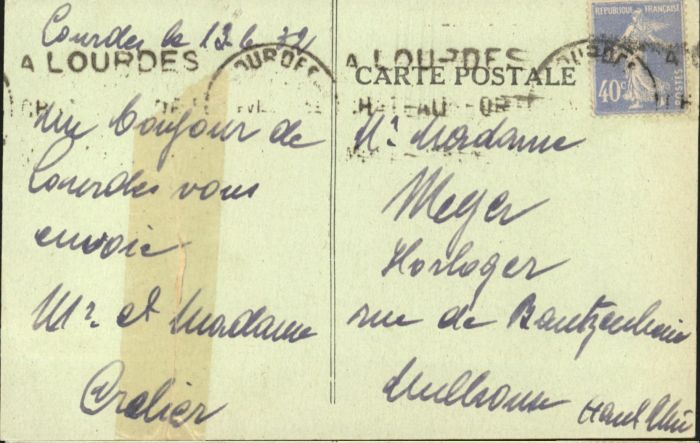 Lourdes le 12 6 32
A LOURDES
LOURDES
Un bonjour de
Lourdes vous
envoie
Mr et Madame
A LOURDES
LOURDES
CARTE POSTALE
CHATEAU-FORT
REPUBLIQUE FRANÇAISE
POSTES
40c
Mr Madame
Meyer
Horloger
rue de Bantzenheim
Mulhouse Haut Rhin